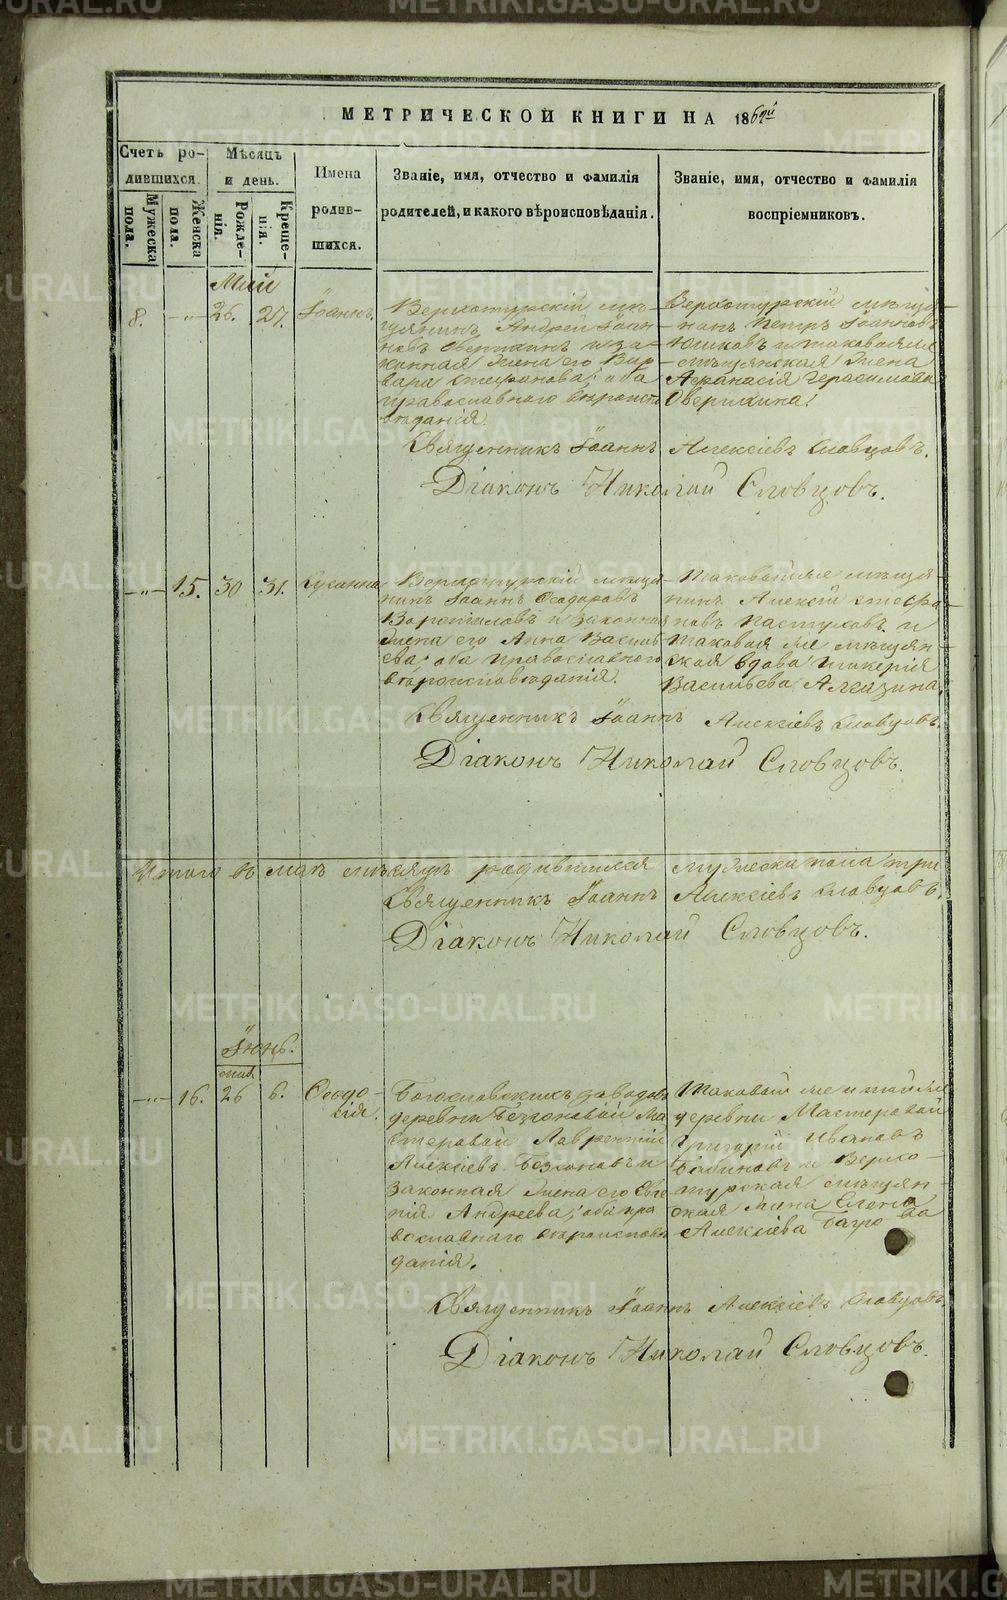 МЕТРИЧЕСКОЙ КНИГИ НА 18
Счетъ ро-
дившихся.
Мужеска
пола.
Женска
пола.
Мѣсяцъ
и день.
Рожде-
нія.
Креще-
нія.
Имена
родив-
шихся.
Званіе, имя, отчество и фамилія
родителей, и какого вѣроисповѣданія.
Званіе, имя, отчество и фамилія
воспріемниковъ.
Май
8. —"— 26. 27. Іоаннъ.
Верхотурскій мѣ-
щанинъ Андрей Іоан-
новъ и за-
конная жена его Вар-
вара Стефанова; оба
православнаго вѣроиспо-
вѣданія.
Верхотурскій мѣща-
нинъ Петръ Іоанновъ
и таковая же
мѣщанская жена
Афанасія Герасимова
Оверкина.
Священникъ Іоаннъ Алексіевъ Словцовъ.
Діаконъ Николай Словцовъ.
—"— 15. 30 31. Сусанна
Верхотурскій мѣща-
нинъ Іоаннъ Ѳеодоровъ
и законная
жена его Анна Василь-
ева; оба православнаго
вѣроисповѣданія.
Таковой же мѣща-
нинъ Алексій Стефа-
новъ Пастуховъ и
таковая же мѣщан-
ская вдова Гликерія
Васильева
Священникъ Іоаннъ Алексіевъ Словцовъ.
Діаконъ Николай Словцовъ.
Итого въ маѣ мѣсяцѣ родившихся мужеска пола три
Священникъ Іоаннъ Алексіевъ Словцовъ.
Діаконъ Николай Словцовъ.
Іюнь.
мая.
—"— 16. 26 6. Ѳеодо-
сія.
Богословскихъ заводовъ
деревни Безсоновой ма-
стеровой Лаврентій
Алексіевъ Безсоновъ и
законная жена его Евге-
нія Андреева; оба пра-
вославнаго вѣроисповѣ-
данія.
Таковой же и той же
деревни мастеровой
Григорій Ивановъ
и Верхо-
турская мѣщан-
ская жена Елена
Алексіева
Священникъ Іоаннъ Алексіевъ Словцовъ.
Діаконъ Николай Словцовъ.
METRIKI.GASO-URAL.RU